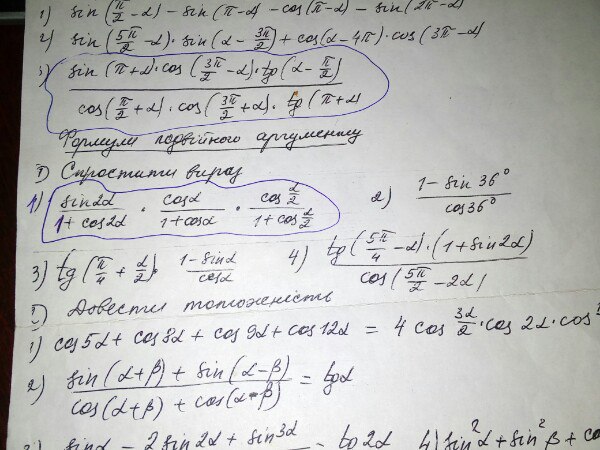 1) sin(π/2 - α) - sin(π - α) - cos(π - α) - sin(2π - α)
2) sin(5π/2 - α) · sin(α - 3π/2) + cos(α - 4π) · cos(3π - α)
3) sin(π + α) · cos(3π/2 - α) · tg(α - π/2) / cos(π/2 + α) · cos(3π/2 + α) · tg(π + α
Формули подвійного аргументу
I) Спростити вираз
1) sin2α / 1 + cos2α · cosα / 1 + cosα · cos α/2 / 1 + cos α/2 2) 1 - sin 36° / cos 36°
3) tg(π/4 + α/2) · 1 - sinα / cosα 4) tg(5π/4 - α) · (1 + sin2α) / cos(5π/2 - 2α)
Довести тотожність
1) cos5α + cos8α + cos9α + cos12α = 4 cos 3α/2 · cos 2α · cos
2) sin(α+β) + sin(α-β) / cos(α+β) + cos(α-β) = tgα
sinα - 2 sin2α + sin3α = tg2α 4) sin²α + sin²β + co